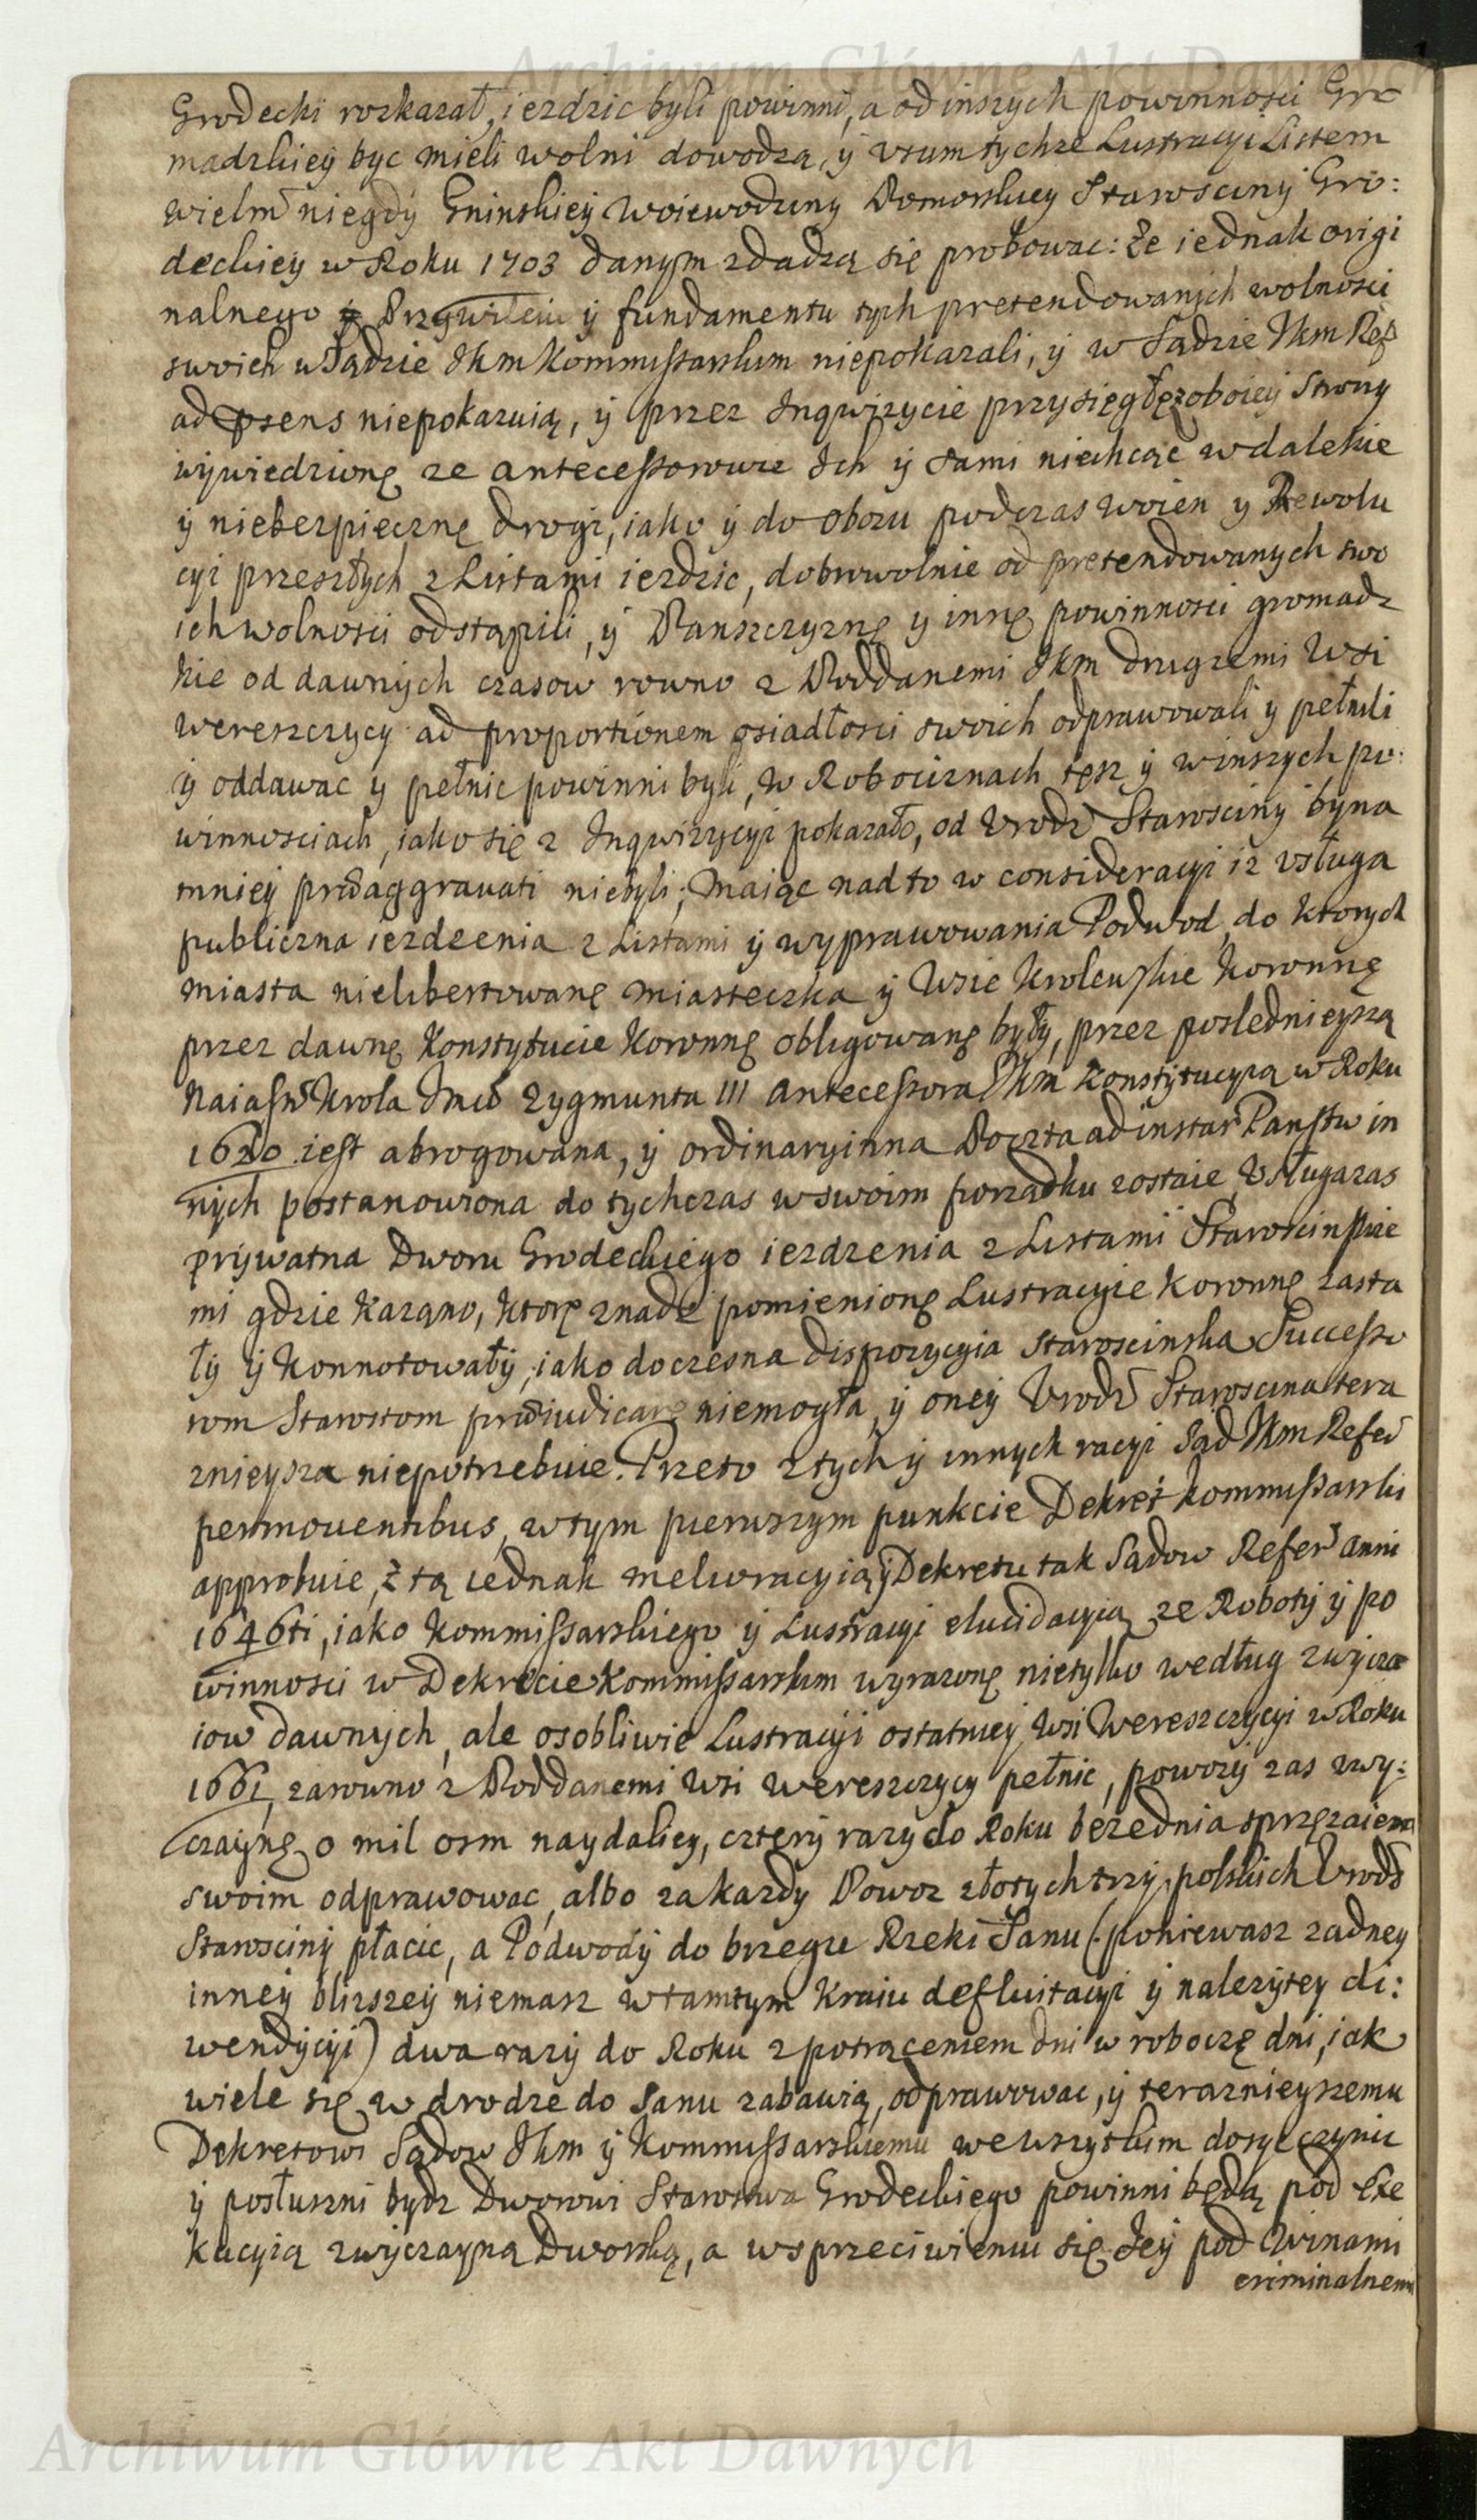 Archiwum Główne Akt Dawnych
Grodecki rozkazał, iezdzic byli powinni, a od inszych powinnosci Gro
madzkiey byc mieli wolni dowodzą, ÿ vsum tychże Lustracyi Listem
wielm niegdÿ Gninskieÿ Woiewodziny Pomorskiey Starosciny Gro:
deckieÿ w Roku 1703 danym zdadzą się probowac: Że iednak origi
nalnego Przywileiu ÿ fundamentu tych pretendowanÿch wolnosci
swoich w Sądzie Jkm Kommissarskim niepokazali, ÿ w Sądzie Jkm Ref
ad psens niepokazuią, ÿ przez Inqwizycie przysięgłę z oboieÿ Strony
wÿwiedzionę ze antecessorowie Ich ÿ sami niechcąc w dalekie
ÿ niebezpiecznę drogi, iako ÿ do obozu podczas woien y Rewolu
cyi przeszłych z Listami iezdzic, dobrowolnie od pretendowanych swo
ich wolnosci odstąpili, ÿ Panszczyznę y innę powinnosci gromadz
kie od dawnÿch czasow rowno z Poddanemi Jkm drugiemi Wsi
Wereszczycy ad proportionem osiadłosci swoich odprawowali y pełnili
ÿ oddawac y pełnic powinni byli, w Robociznach tęsz ÿ winszych po:
winnosciach, iako się z Inqwizycyi pokazało, od Vrodz Starosciny byna
mnieÿ praaggravati niebyli; Maiąc nadto w consideracyi iz vsługa
publiczna iezdzenia z Listami ÿ wyprawowania Podwod, do ktorych
miasta nielibertowanę miasteczka ÿ Wsie Krolewskie Koronnę
przez dawnę Konstytucie Koronnę obligowanę byłÿ, przez poslednieyszą
Naiasn Krola Jmci Zygmunta III Antecessora Jkm Konstÿtucyią w Roku
1620 iest abrogowana, ÿ ordinaryinna Poczta ad instar Panstw in
nÿch postanowiona do tychczas wswoim porządku zostaie, Vsługa zas
prÿwatna Dworu Grodeckiego iezdzenia z Listami Staroscinskie
mi gdzie kazano, ktorę znadz pomienionę Lustracyie Koronnę zasta
łÿ ÿ Konnotowałÿ, iako doczesna dispozycyia Staroscinska Successo
rom Starostom praiudicarę niemogła, ÿ oneÿ Vrodz Staroscina tera
znieysza niepotrzebuie. Przeto z tych ÿ innych racyi Sąd Jkm Refer
permoventibus, w tym pierwszym punkcie Dekret Kommissarski
approbuie, z tą iednak melioracyią ÿ Dekretu tak Sądow Refer anni
1646ti, iako Kommissarskiego ÿ Lustracyi elucidacyią, ze Robotÿ ÿ po
winnosci w Dekrecie Kommissarskim wyrazonę nietylko według zwycza
iow dawnÿch, ale osobliwie Lustracÿi ostatniey Wsi Wereszczycyi w Roku
1661, zarowno z Poddanemi Wsi Wereszczycy pełnic, powozÿ zas zwy:
czaynę, o mil osm naydaliey, czterÿ razy do Roku bezednia sprzęzaiem
swoim odprawowac, albo za kazdy Powoz złotych trzy polskich Vrodz
Starosciny płacic, a Podwodÿ do brzegu Rzeki Sanu (poniewasz zadney
inneÿ blizszeÿ niemasz w tamtym Kraiu defluitacyi ÿ nalezÿtey di:
wendÿcyi) dwa razÿ do Roku z potrąceniem dni w roboczę dni, iak
wiele się w drodze do Sanu zabawią, odprawowac, ÿ teraznieyszemu
Dekretowi Sądow Jkm ÿ Kommissarskiemu we wszystkim dosyc czynic
ÿ posłuszni bydz Dworowi Starostwa Grodeckiego powinni będą, pod Exe
kucyią zwÿczayną Dworską, a wsprzeciwieniu się Jeÿ pod Winami
criminalnemi
Archiwum Główne Akt Dawnych